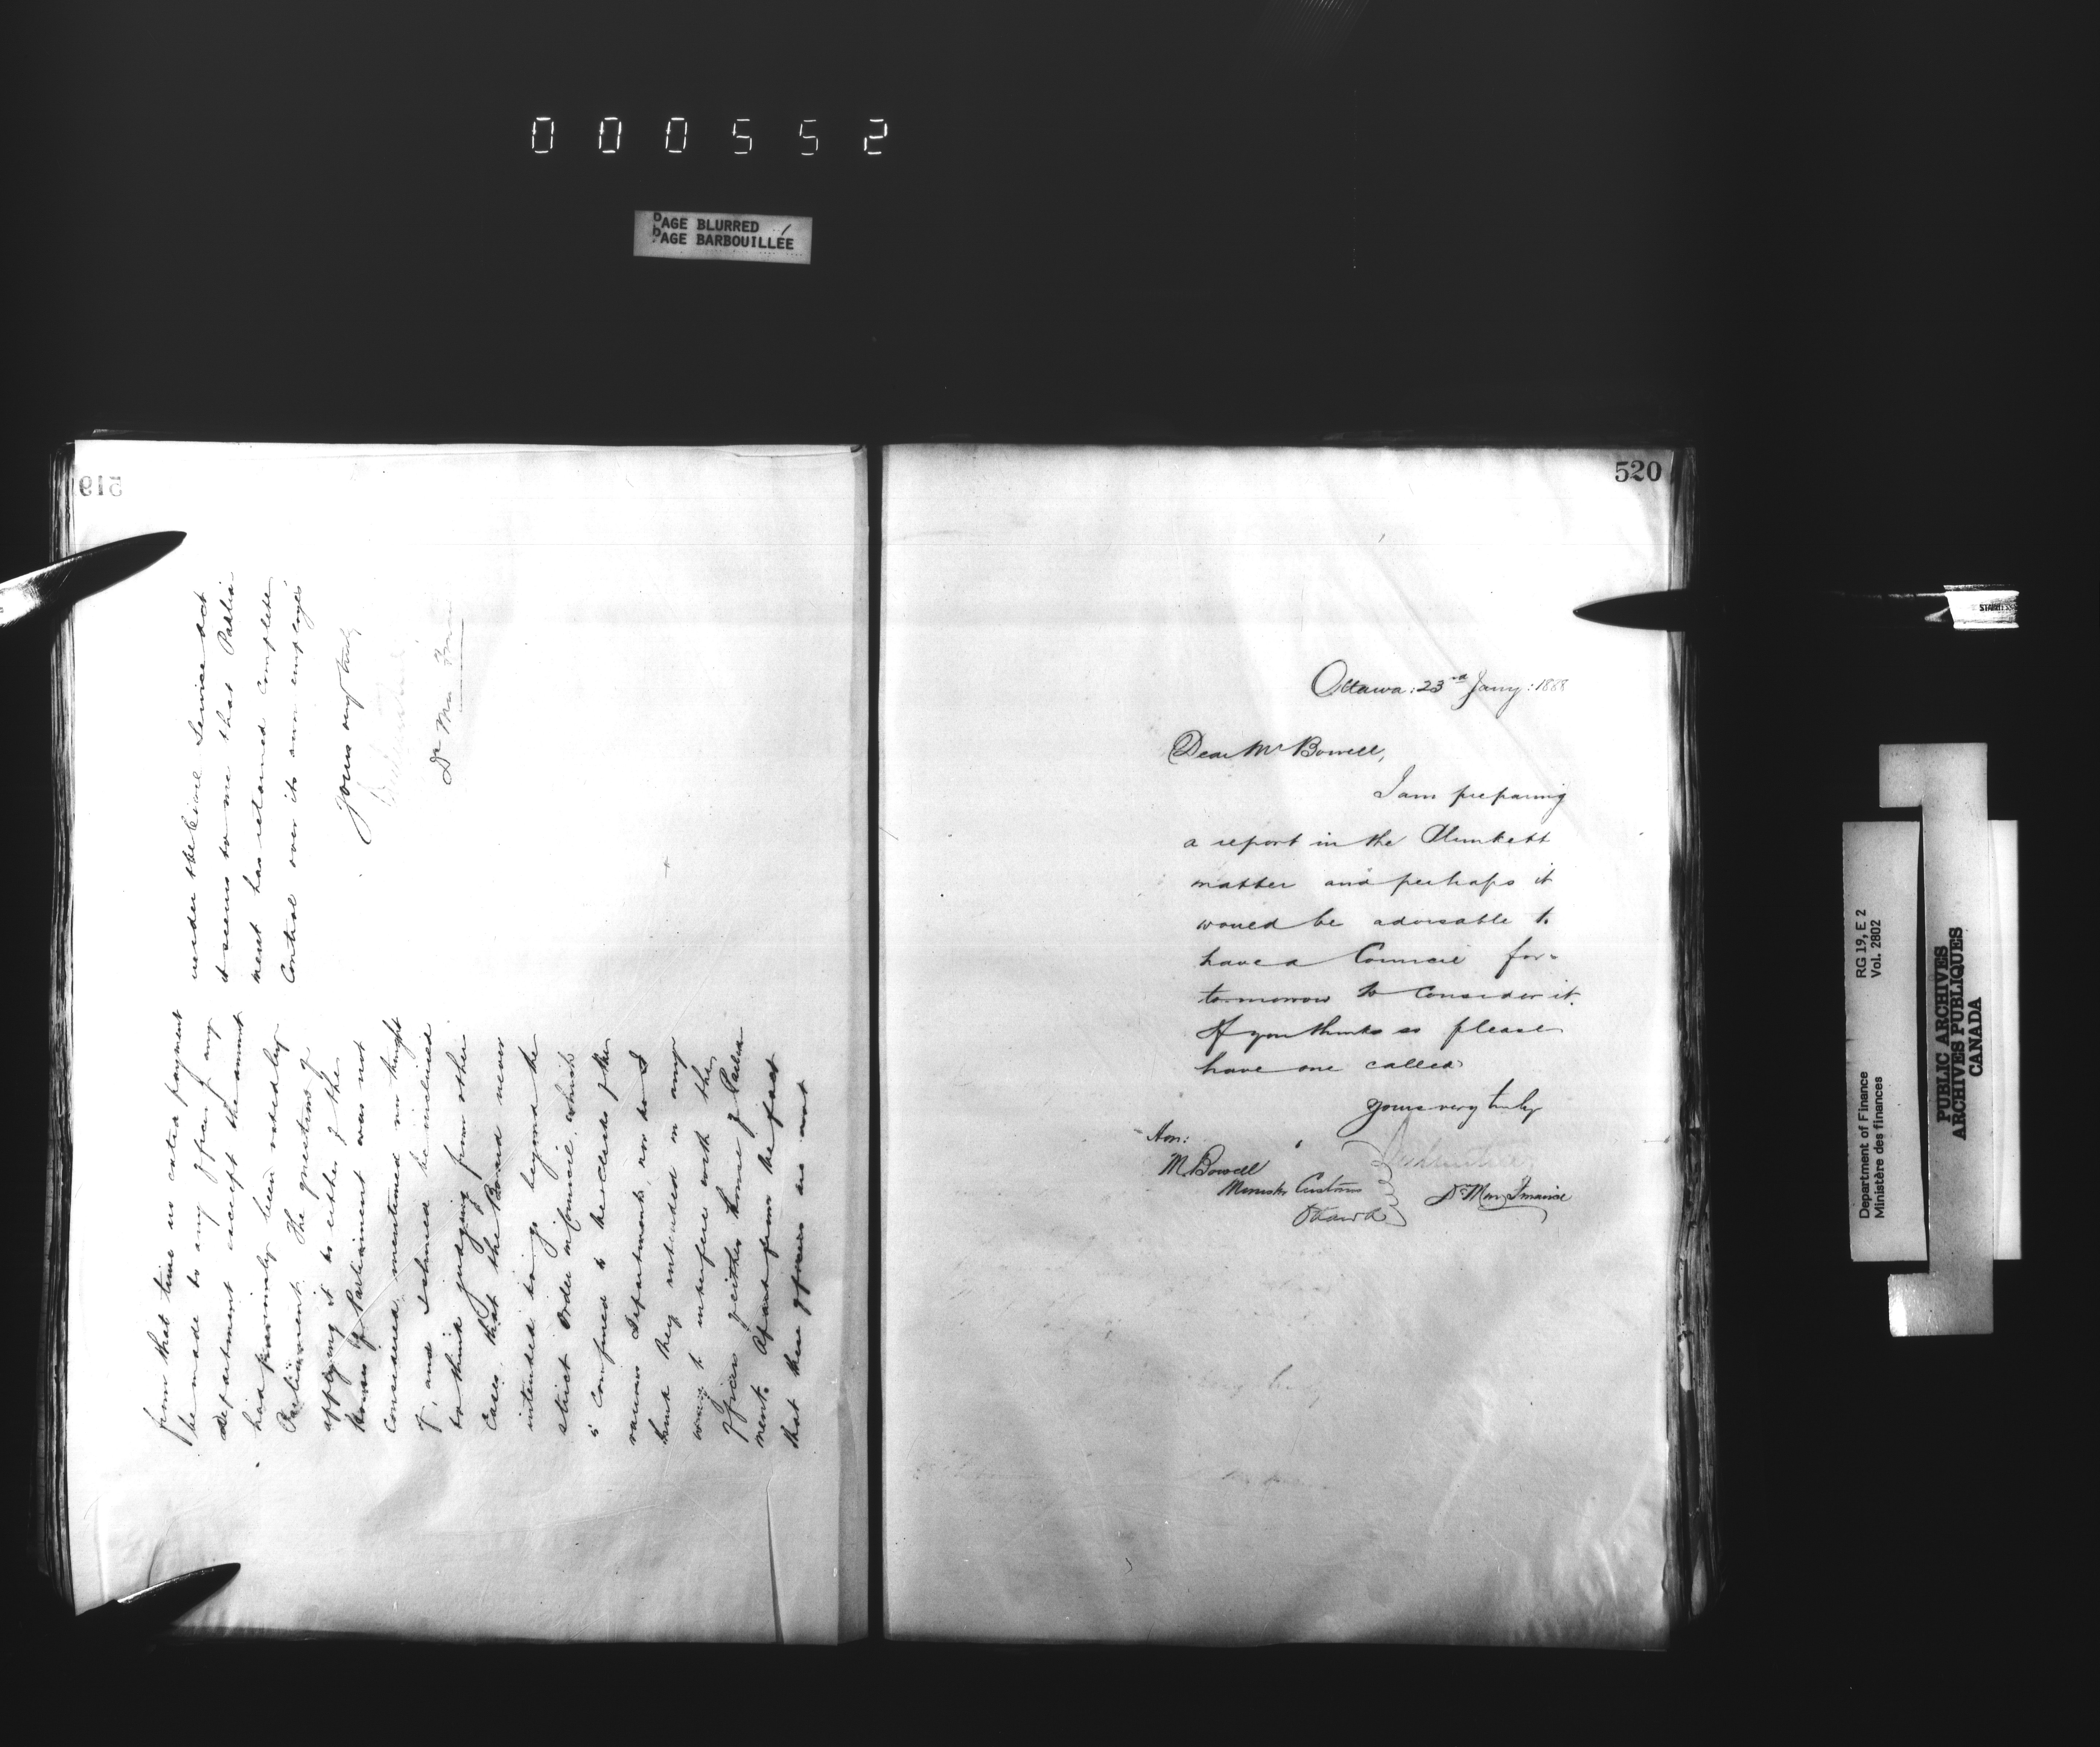 000552
PAGE BLURRED
PAGE BARBOUILLÉE
519
from that time no extra payment
be made to any officer of any
department except the amount
had previously been voted by
Parliament. The question of
applying it to either of the
Houses of Parliament was not
considered, mentioned nor thought
of, and I should be inclined
to think judging from other
cases that the Board never
intended to go beyond the
strict order in Council, which
is confined to the clerks of the
various Departments, nor do I
think they intended in any
way to interfere with the
officers of either House of Parlia-
ment. Apart from the fact
that these officers are not
under the Civil Service Act
it seems to me that Parlia-
ment has retained complete
control over its own employés
Yours very truly
D. Min. Fin.
520
Ottawa: 23rd Jany: 1888
Dear Mr Bowell,
I am preparing
a report in the Plunkett
matter and perhaps it
would be advisable to
have a Council for
tomorrow to consider it.
If you think so please
have one called
Yours very truly
Hon:
M. Bowell
Minister Customs
Ottawa
D. Min. Finance
Department of Finance
Ministère des finances
RG 19, E 2
Vol. 2802
PUBLIC ARCHIVES
ARCHIVES PUBLIQUES
CANADA